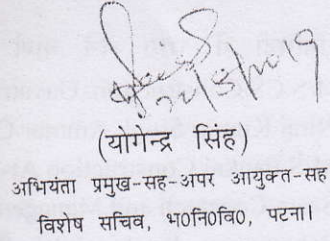 (योगेन्द्र सिंह)
अभियंता प्रमुख-सह-अपर आयुक्त-सह
विशेष सचिव, भ०नि०वि०, पटना।